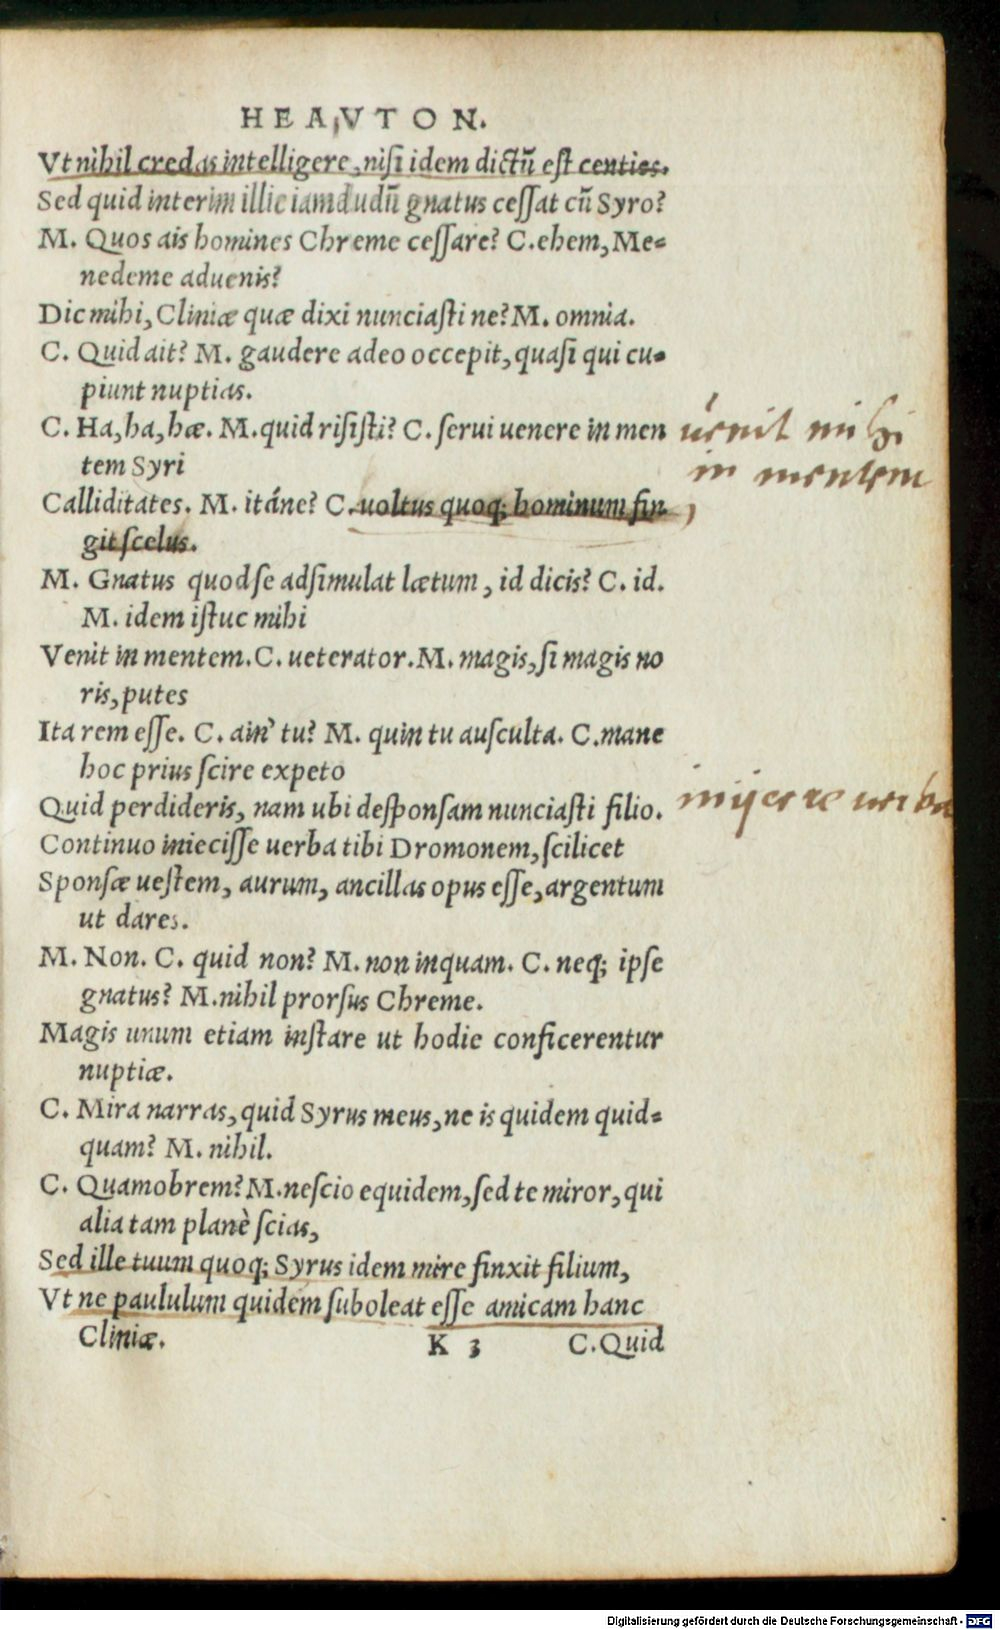 HEAVTON.
Vt nihil credas intelligere, nisi idem dictũ est centies.
Sed quid interim illic iamdudũ gnatus cessat cũ Syro?
M. Quos ais homines Chreme cessare? C. ehem, Me=
nedeme aduenis?
Dic mihi, Cliniæ quæ dixi nunciasti ne? M. omnia.
C. Quid ait? M. gaudere adeo occepit, quasi qui cu=
piunt nuptias.
C. Ha, ha, hæ. M. quid risisti? C. serui uenere in men
uenit mihi
tem Syri
in mentem
Calliditates. M. itáne? C. uoltus quoq; hominum fin
git scelus.
M. Gnatus quod se adsimulat lætum, id dicis? C. id.
M. idem istuc mihi
Venit in mentem. C. ueterator. M. magis, si magis no
ris, putes
Ita rem esse. C. ain' tu? M. quin tu ausculta. C. mane
hoc prius scire expeto
Quid perdideris, nam ubi desponsam nunciasti filio.
inijcere uerba
Continuo iniecisse uerba tibi Dromonem, scilicet
Sponsæ uestem, aurum, ancillas opus esse, argentum
ut dares.
M. Non. C. quid non? M. non inquam. C. neq; ipse
gnatus? M. nihil prorsus Chreme.
Magis unum etiam instare ut hodie conficerentur
nuptiæ.
C. Mira narras, quid Syrus meus, ne is quidem quid=
quam? M. nihil.
C. Quamobrem? M. nescio equidem, sed te miror, qui
alia tam planè scias,
Sed ille tuum quoq; Syrus idem mire finxit filium,
Vt ne paululum quidem suboleat esse amicam hanc
Cliniæ.
K 3
C. Quid
Digitalisierung gefördert durch die Deutsche Forschungsgemeinschaft - DFG